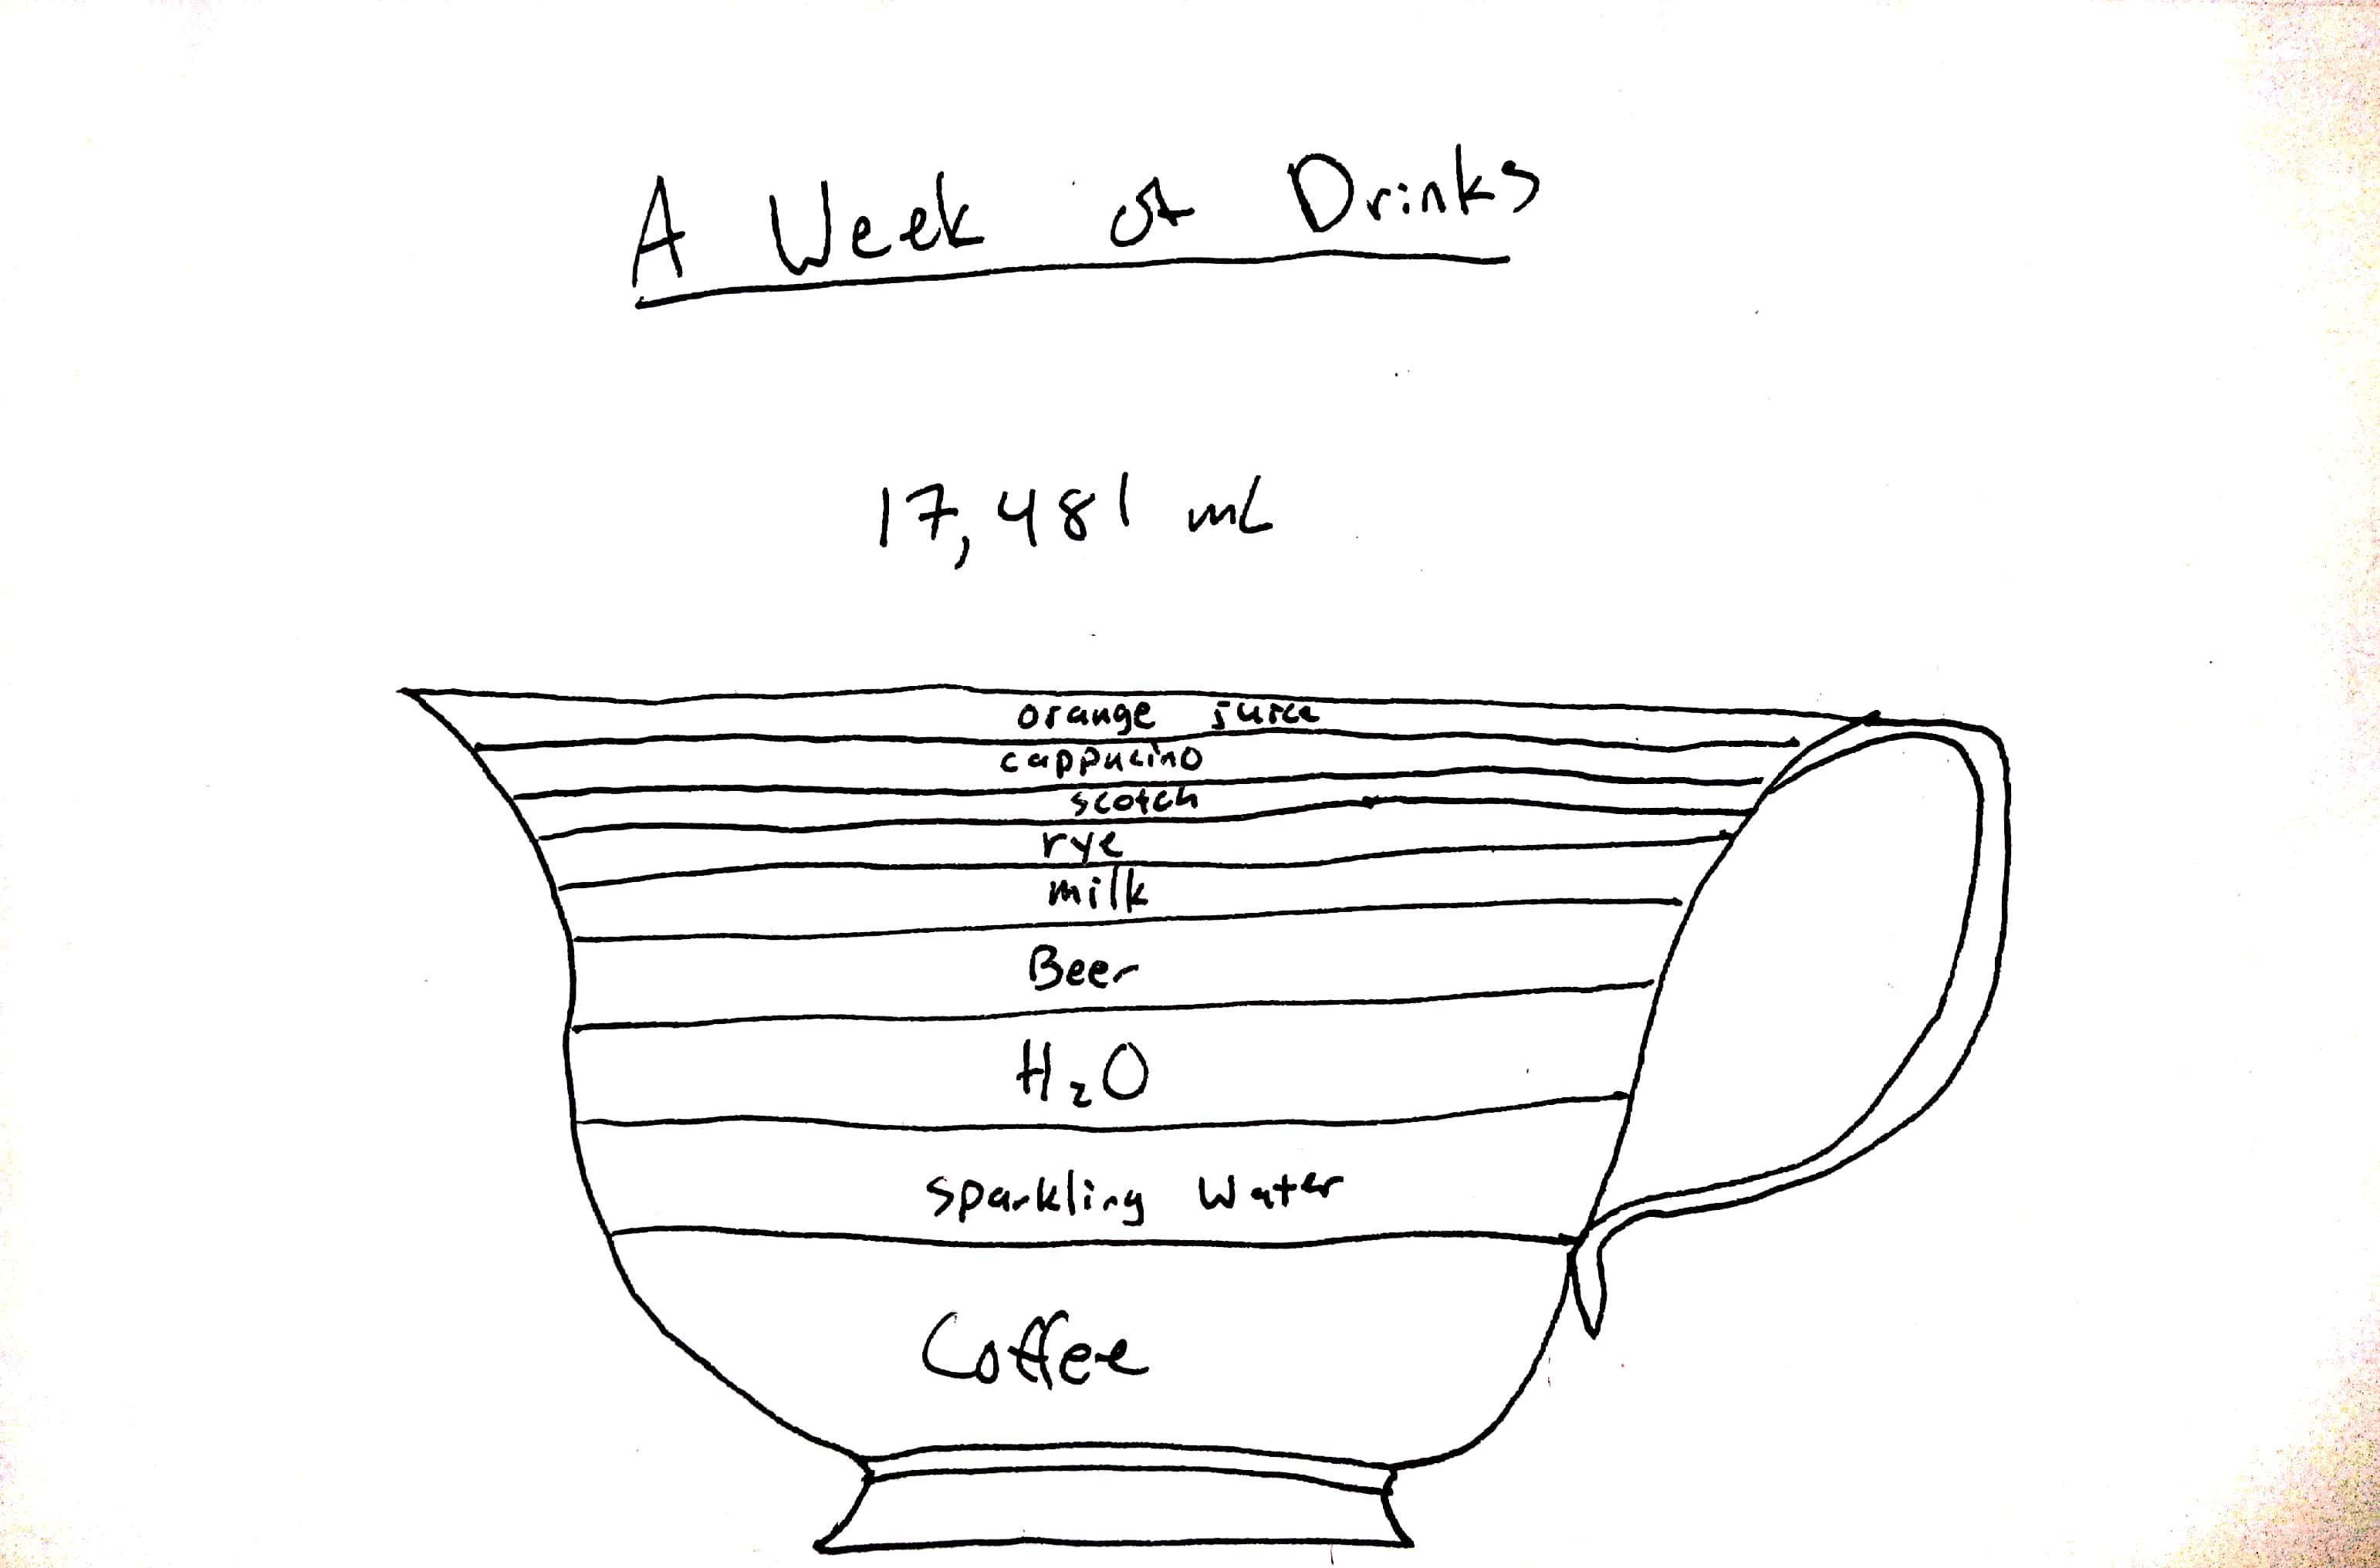 A Week of Drinks
17,481 mL
orange juice
cappucino
scotch
rye
milk
Beer
H₂O
Sparkling Water
Coffee